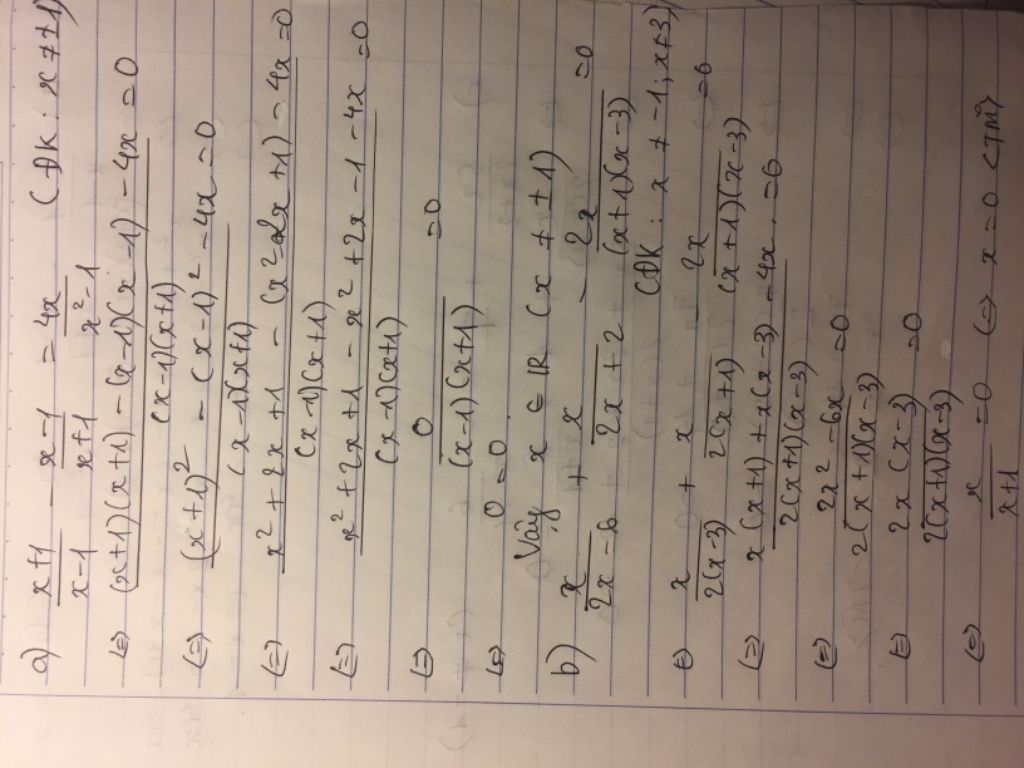 a) (x+1)/(x-1) - (x-1)/(x+1) = 4x/(x²-1) (ĐK: x ≠ ±1)
(=) ((x+1)(x+1) - (x-1)(x-1) - 4x)/((x-1)(x+1)) = 0
(=) ((x+1)² - (x-1)² - 4x)/((x-1)(x+1)) = 0
(=) (x²+2x+1 - (x²-2x+1) - 4x)/((x-1)(x+1)) = 0
(=) (x²+2x+1 - x²+2x-1-4x)/((x-1)(x+1)) = 0
(=) 0/((x-1)(x+1)) = 0
(=) 0 = 0
Vậy x ∈ R (x ≠ ±1)
b) x/(2x-6) + x/(2x+2) - 2x/((x+1)(x-3)) = 0
(ĐK: x ≠ -1; x ≠ 3)
(=) x/(2(x-3)) + x/(2(x+1)) - 2x/((x+1)(x-3)) = 0
(=) (x(x+1) + x(x-3) - 4x)/(2(x+1)(x-3)) = 0
(=) (2x²-6x)/(2(x+1)(x-3)) = 0
(=) (2x(x-3))/(2(x+1)(x-3)) = 0
(=) x/(x+1) = 0 (=) x = 0 (TM)